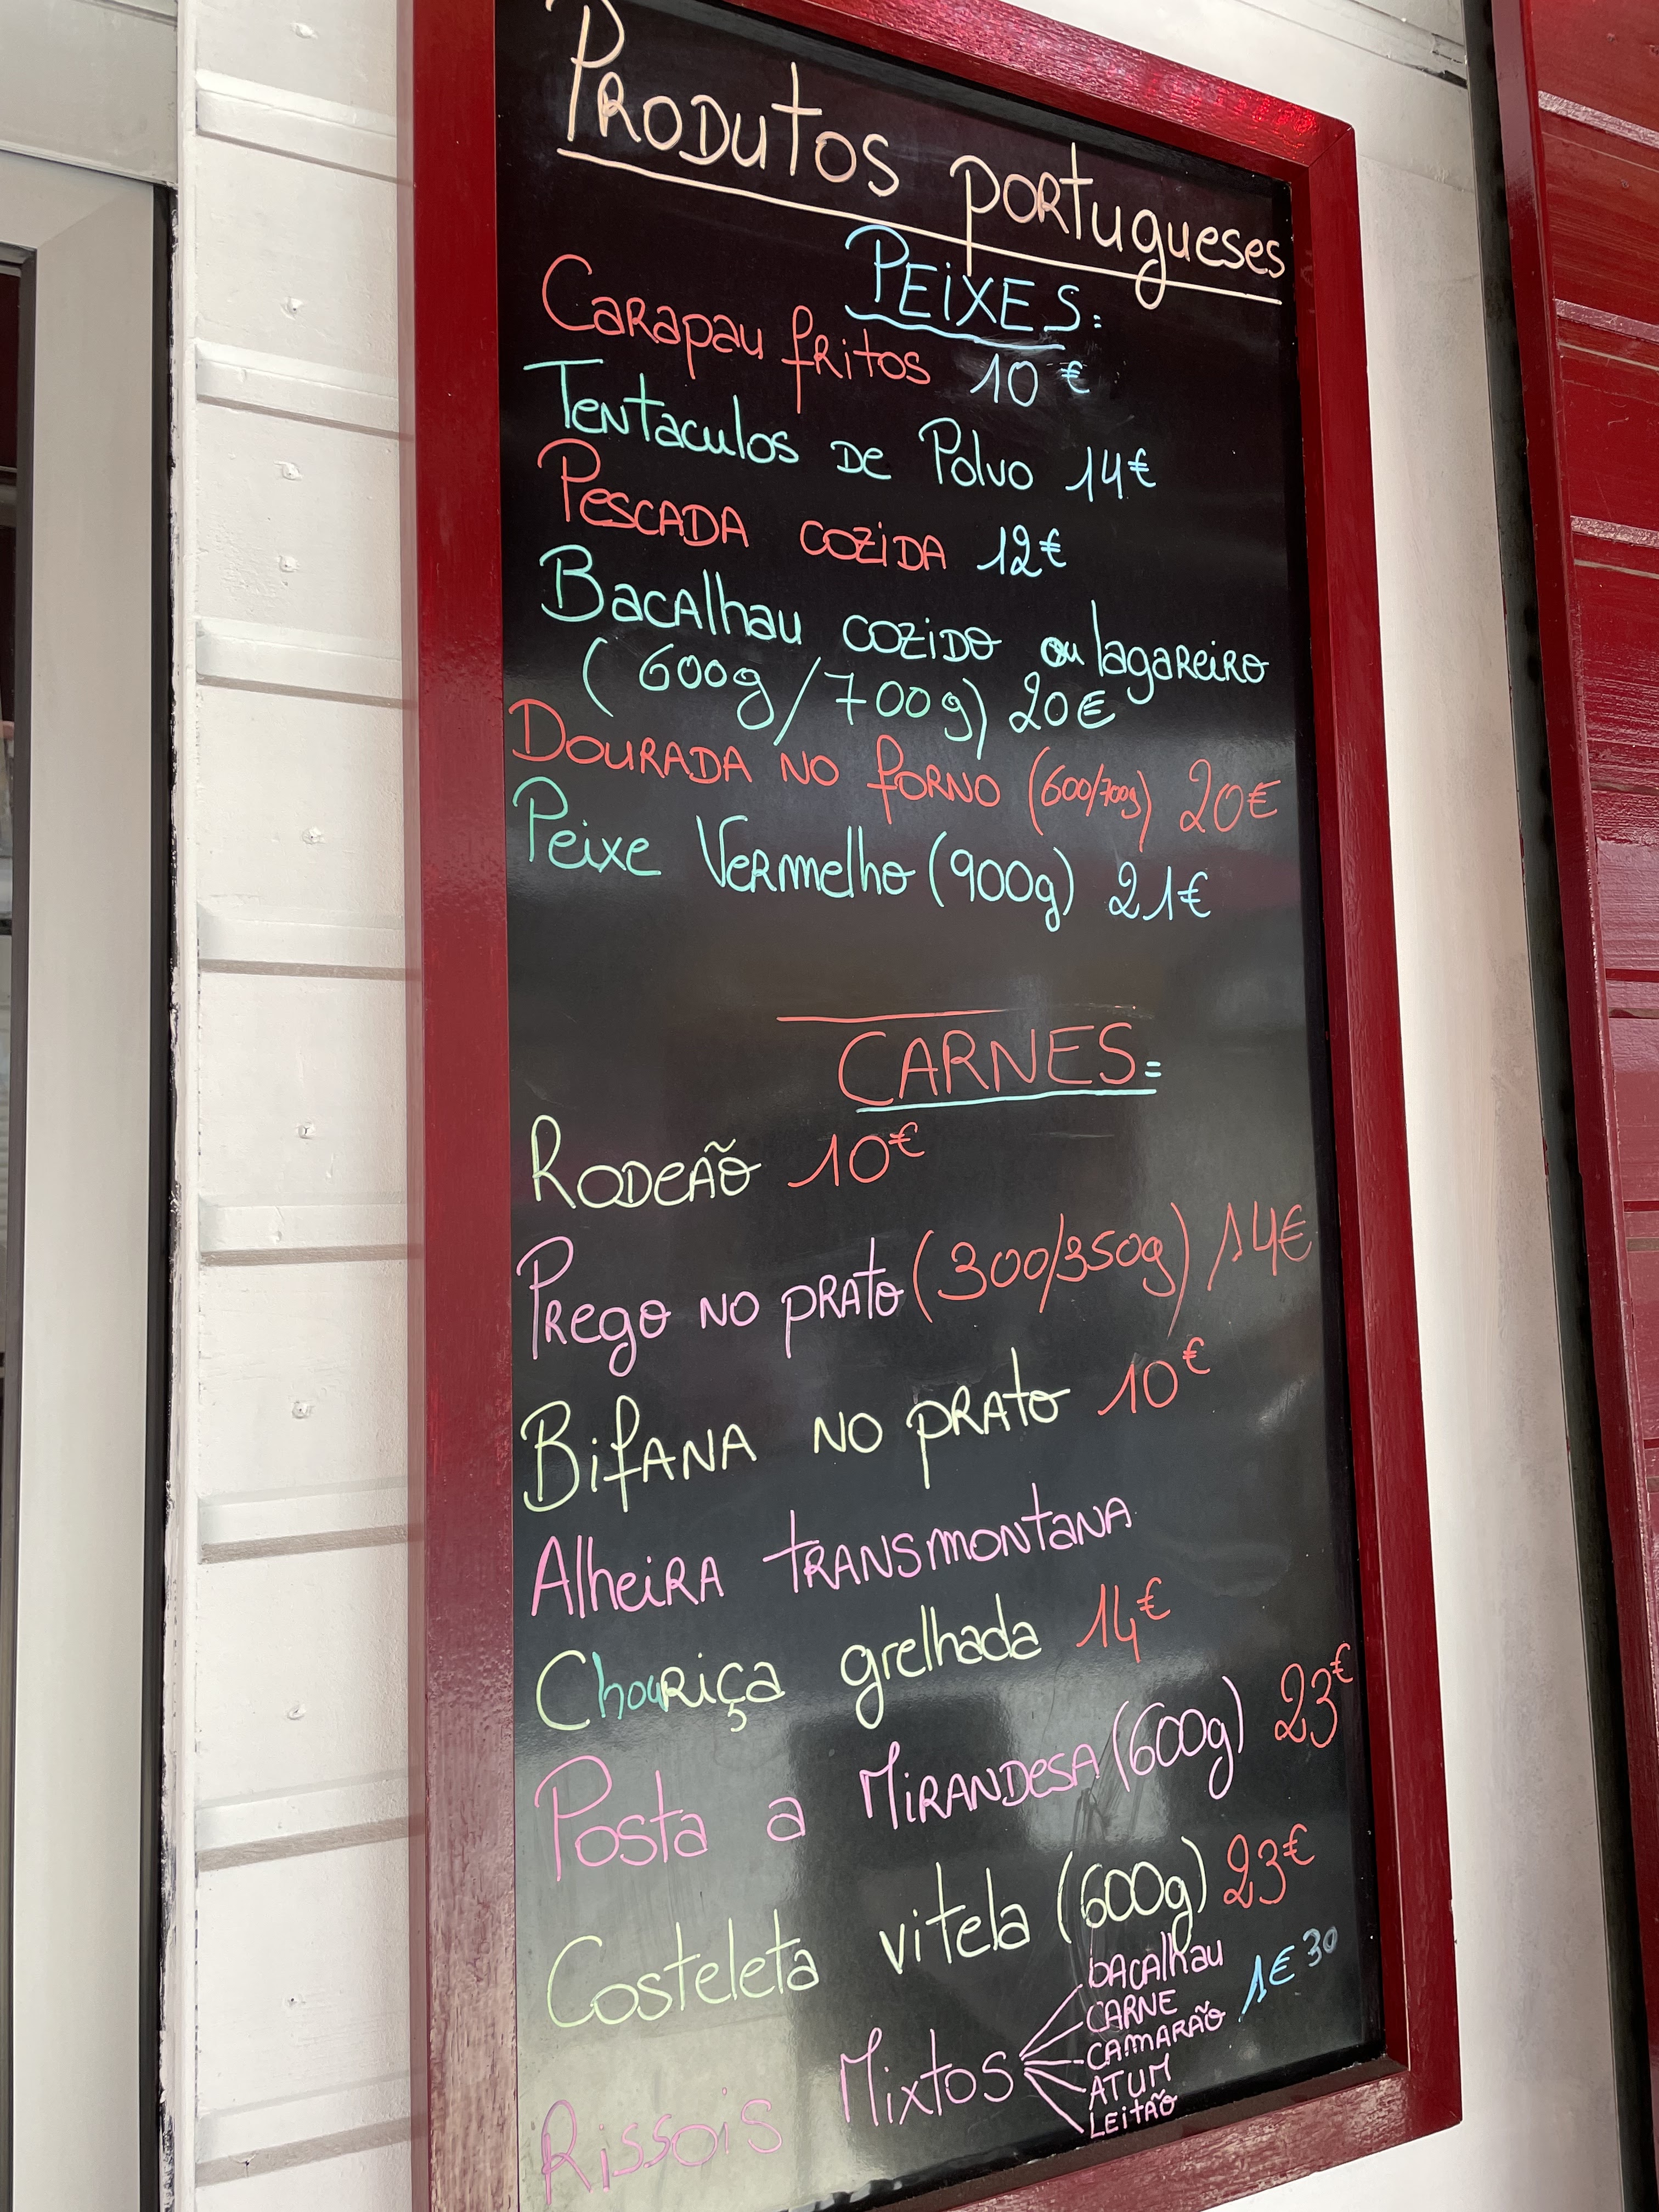 PRODUTOS PORTUGUESES
PEIXES:
Carapau fritos 10€
Tentaculos de Polvo 14€
PESCADA COZIDA 12€
Bacalhau cozido ou lagareiro
(600g/700g) 20€
DOURADA NO FORNO (600/700g) 20€
Peixe Vermelho (900g) 21€
CARNES:
RODEÃO 10€
Prego no prato (300/350g) 14€
Bifana no prato 10€
Alheira transmontana
Chouriça grelhada 14€
Posta a Mirandesa (600g) 23€
Costeleta vitela (600g) 23€
Rissois Mixtos
bacalhau
CARNE
CAMARÃO 1€30
ATUM
LEITÃO